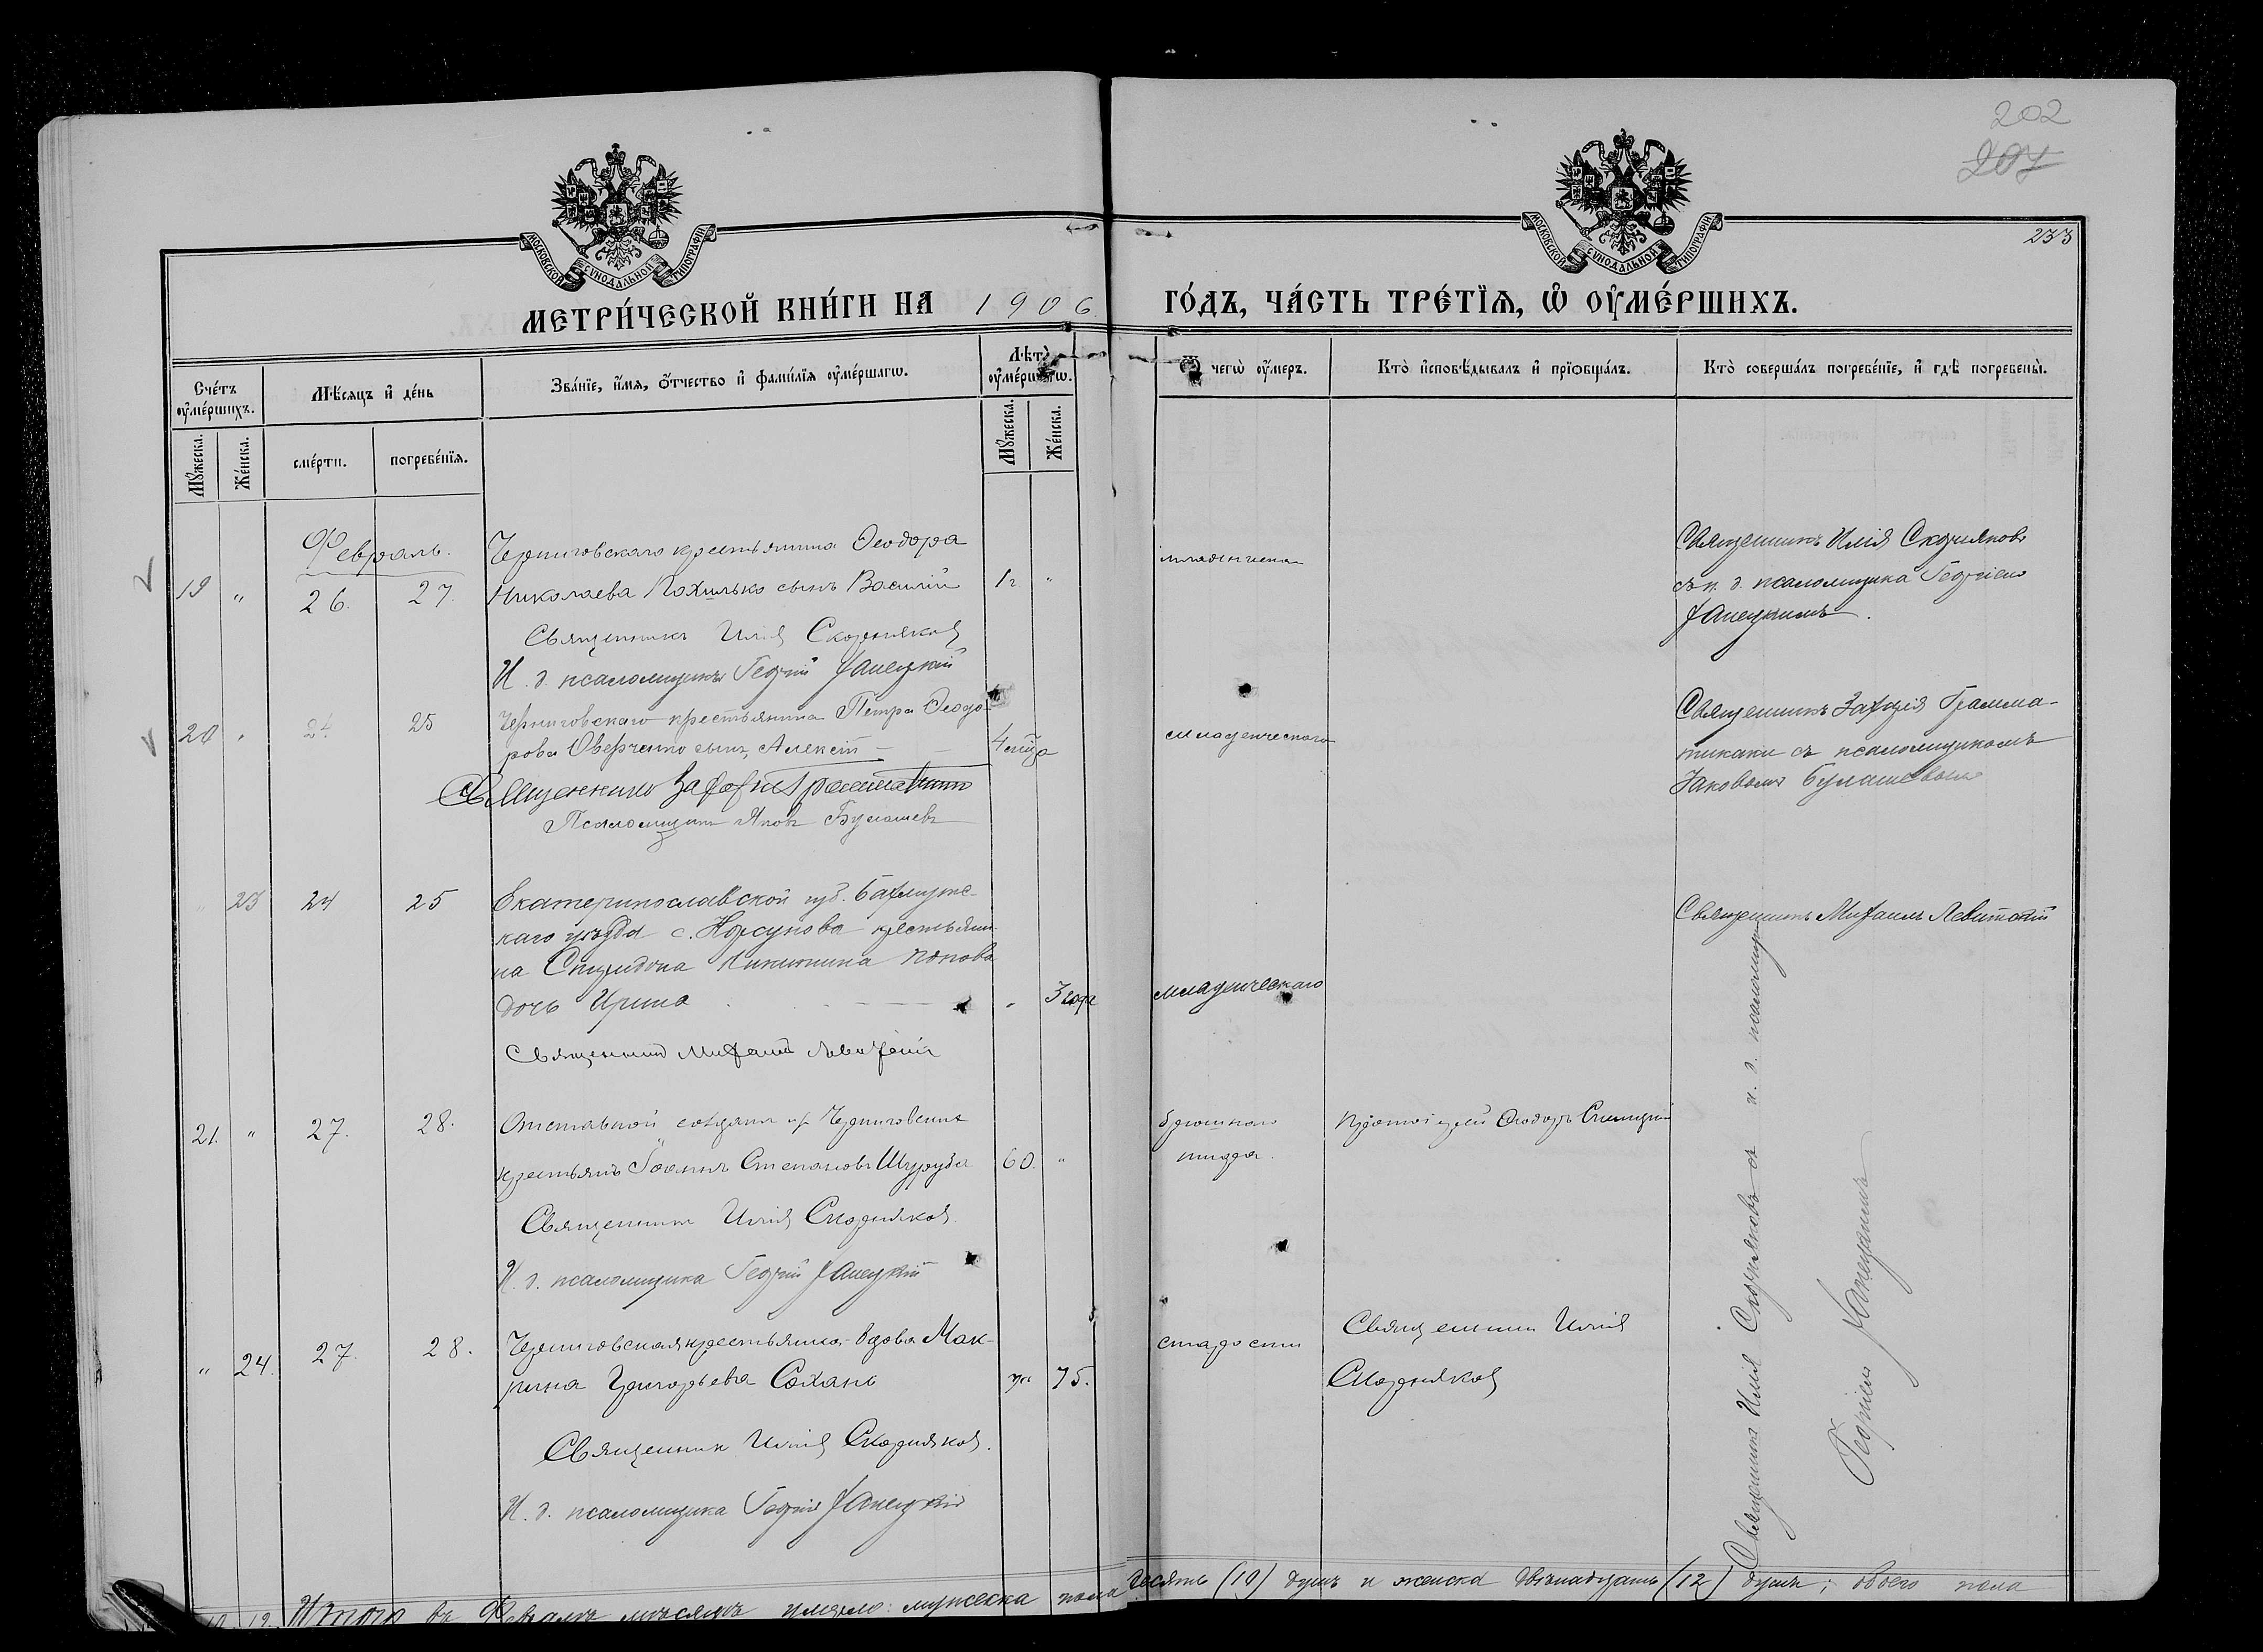 202
207
233
МОСКОВСКОЙ СУНОДАЛЬНОЙ ТИПОГРАФІИ
МОСКОВСКОЙ СУНОДАЛЬНОЙ ТИПОГРАФІИ
МЕТРИ́ЧЕСКОЙ КНИ́ГИ НА 1906 ГО́ДЪ, ЧА́СТЬ ТРЕ́ТЇѦ, Ѽ ОУ҆МЕ́РШИХЪ.
Сче́тъ оу҆ме́ршихъ.
Мꙋ́жеска.
Же́нска.
Мѣ́сяцъ и҆ де́нь
сме́рти.
погребе́нїѧ.
Зва́нїе, и҆́мѧ, ѻ҆́тчество и҆ фами́лїѧ оу҆ме́ршагѡ.
Лѣ́та оу҆ме́ршагѡ.
Мꙋ́жеска.
Же́нска.
Ѿ чегѡ̀ оу҆́меръ.
Кто̀ и҆сповѣ́дывалъ и҆ прїѡбща́лъ.
Кто̀ соверша́лъ погребе́нїе, и҆ гдѣ̀ погребены̀.
Февраль.
19 " 26. 27.
Черниговскаго крестьянина Ѳеодора
Николаева Похилько сынъ Василій 1 г. "
Священникъ Илія Скорняковъ
И. д. псаломщика Георгій
младенческ
Священникъ Илія Скорняковъ
съ и. д. псаломщика Георгіемъ
20 " 24 25
Черниговскаго крестьянина Петра Ѳеодо-
рова Оверченко сынъ Алексій 4 мѣсца
Священникъ Захарія Грамматикаки
Псаломщикъ Яковъ Булашевъ
младенческаго
Священникъ Захарія Грамма-
тикаки съ псаломщикомъ
Іаковомъ Булашевымъ
23 24 25
Екатеринославской губ. Бахмутс-
каго уѣзда с. Корсунова крестьяни-
на Спиридона Никитина Попова
дочь Ирина " 3 года
Священникъ Михаилъ Левитскій
младенческаго
Священникъ Михаилъ Левитскій
21. " 27. 28.
Отставной солдатъ изъ Черниговскихъ
крестьянъ Іоаннъ Степановъ Шуруба 60. "
Священникъ Илія Скорняковъ.
И. д. псаломщика Георгій
брюшного
тифа.
Протоіерей Ѳеодоръ
" 24. 27. 28.
Черниговская крестьянка-вдова Мак-
рина Григорьева Сохань " 75.
Священникъ Илія Скорняковъ.
И. д. псаломщика Георгій
старости
Священникъ Илія
Скорняковъ
Священникъ Илія Скорняковъ съ и. д. псаломщика
Георгіемъ
Итого въ Февралѣ мѣсяцѣ умерло: мужеска пола десять (10) душъ и женска двѣнадцать (12) душъ; обоего пола